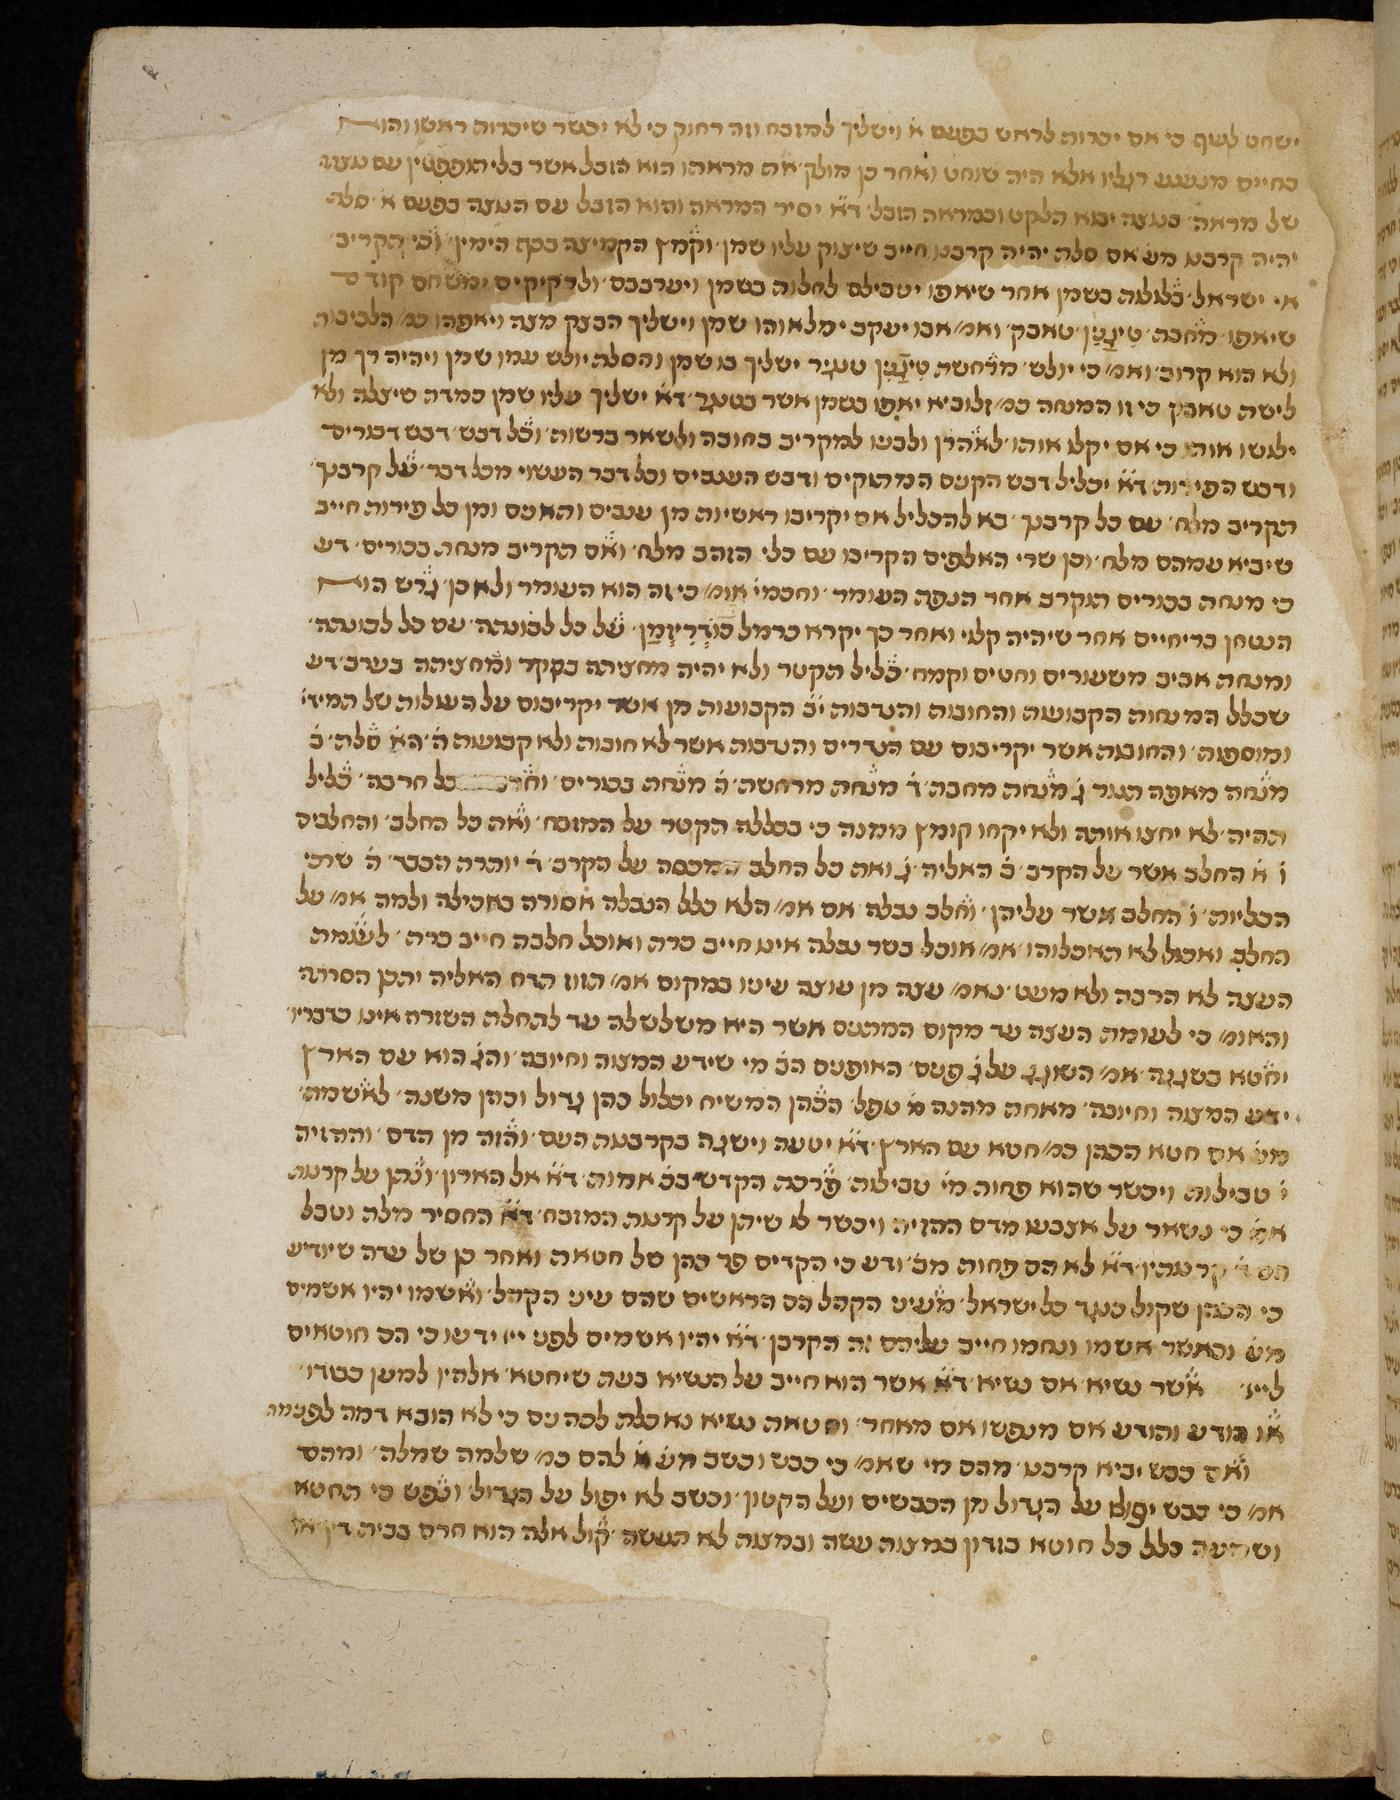 ישחט לעוף כי אם יכרות לראש בפעם א׳ וישליך למזבח וזה רחוק כי לא יכשר שיכרות ראשו והוא
בחיים מנענע רגליו אלא היה שוחט ואחר כן מולק׳ את מראתו הוא הזבל אשר בלי תופפטין עם נוצה
של מראה׳ בנוצה יבוא הלקט ובמראה הזבל׳ ד״א יסיר המראה והוא הזבל עם הנוצה בפעם א׳ סלת
יהיה קרבנו מע׳ אם סלת יהיה קרבנו חייב שיצוק עליו שמן׳ וקמץ הקמיצה בכף הימין׳ וכי תקריב׳
אי׳ ישראל׳ בלולות בשמן אחר שיאפו יטבילם לחלות בשמן ויערבבם׳ ולרקיקים ימשחם קודם
שיאפו׳ מחבת׳ טיגנין׳ טאבק׳ ואמ׳ אבו יעקב ימלאוהו שמן וישליך הבצק מצה ויאפהו כמ׳ הלביבות
ולא הוא קרוב׳ ואמ׳ כי יולש׳ מרחשת טינגין טענר ישליך בו שמן והסלת יולש עמו שמן ויהיה רך מן
לישת טאבק כי זו המנחה כמ׳ זלוביא יאפו בשמן אשר בטענר׳ ד״א ישליך עליו שמן כמדה שיעלה ולא
ילושו אותו כי אם יקלו אותו׳ לאהרן ולבניו למקריב בחובה ולשאר ברשות׳ וכל דבש׳ דבש דבורים
ודבש הפירות׳ ד״א יכליל דבש הקנים המתוקים ודבש הענבים וכל דבר העשוי מכל דבר׳ על קרבנך
תקריב מלח׳ עם כל קרבנך׳ בא להכליל אם יקריבו ראשיות מן ענבים והאנים ומן כל פירות חייב
שיביא עמהם מלח׳ וכן שרי האלפים הקריבו עם כלי הזהב מלח׳ ואם תקריב מנחת בכורים׳ דע
כי מנחת בכורים תוקרב אחר הנפת העומר׳ וחכמי׳ אומ׳ כי זה הוא העומר ולא כן׳ גרש הוא
הנטחן בריחיים אחר שיהיה קלוי ואחר כך יקרא כרמל כודריזמן׳ על כל לבונתה׳ עם כל לבונתה׳
ומנחת אביב משעורים וחטים וקמח׳ כליל תקטר ולא יהיה מחציתה בבקר ומחציתה בערב׳ דע
שכלל המנחות הקבועות והחובות והנדבות י״ב הקבועות מן אשר יקריבום על העולות של תמיד׳
ומוספות׳ והחובות אשר יקריבום עם הנדרים והנדבות אשר לא חובות ולא קבועות ה׳ הא׳ סלת׳ ב׳
מנחת מאפה תנור ג׳ מנחת מחבת׳ ד׳ מנחת מרחשת׳ ה׳ מנחת בכורים׳ וחרבה בל חרבה׳ כליל
תהיה׳ לא יחצו אותה ולא יקחו קומץ ממנה כי בכללה תקטר על המזבח׳ ואת כל החלב׳ והחלבים
ו׳ א׳ החלב אשר על הקרב׳ ב׳ האליה׳ ג׳ ואת כל החלב המכסה על הקרב׳ ד׳ יותרת הכבד׳ ה׳ שתי
הכליות׳ ו׳ החלב אשר עליהן׳ וחלב נבלה׳ אם אמ׳ הלא כלל הנבלה אסורה באכילה ולמה אמ׳ על
החלב ואכול לא תאכלוהו׳ אמ׳ אוכל בשר נבלה אינו חייב כרת ואוכל חלבה חייב כרת׳ לעומת
העצה לא הרבה ולא מעט׳ נאמ׳ עצה מן עוצה עיניו במקום אמ׳ תזוז תדח האליה יתכן הסרתה
והאומ׳ כי לעומת העצה עד מקום המתנים אשר היא משלשלת עד לתחלת השזרת אינו כדבריו׳
יחטא בשגגה׳ אמ׳ השוגג על ג׳ פנים׳ האופנים הב׳ מי שידע המצוה וחיובה׳ והג׳ הוא עם הארץ
ידע המצוה וחיובה׳ מאחת מהנה מ׳ טפל׳ הכהן המשיח יכלול כהן גדול וכהן משנה׳ לאשמת׳
מע׳ אם חטא הכהן כמ׳ חטא עם הארץ׳ ד״א יטעה וישגה בקרבנות העם׳ והזה מן הדם׳ וההזיה
ז׳ טבילות ויכשר שהוא פחות מז׳ טבילות׳ פרכת הקדש בכ׳ אמות׳ ד״א אל הארון׳ ונתן על קרנות
אמ׳ כי נשאר על אצבעו מדם ההזיה ויכשר לו שיתן על קרנות המזבח׳ ד״א החסיר מלת וטבל
קרנותיו׳ ד״א לא הם פחות מב׳ ודע כי הקדים פר כהן של חטאת ואחר כן של עדה שיודיע
כי הכהן שקול כנגד כל ישראל׳ מעיני הקהל הם הראשים שהם עיני הקהל׳ ואשמו יהיו אשמים
מע׳ וכאשר אשמו ונחמו חייב עליהם זה הקרבן׳ ד״א יהיו אשמים לפני ייי ידעו כי הם חוטאים
לייי׳ אשר נשיא׳ אם נשיא׳ ד״א אשר הוא חייב על הנשיא בעת שיחטא׳ אלהיו למען כבודו׳
או הודע והודע אם מנפשו אם מאחר׳ וחטאת נשיא נאכלת לכהנים כי לא הובא דמה לפנימה
ואם כבש יביא קרבנו׳ מהם מי שאמ׳ כי כבש וכשב מע׳ א׳ להם כמ׳ שלמה שמלה׳ ומהם
אמ׳ כי כבש יפול על הגדול מן הכבשים ועל הקטון׳ וכשב לא יפול על הגדול׳ ונפש כי תחטא
ושמעה כלל כל חוטא בזדון במצות עשה ובמצות לא תעשה׳ קול אלה הוא חרם בבית דין